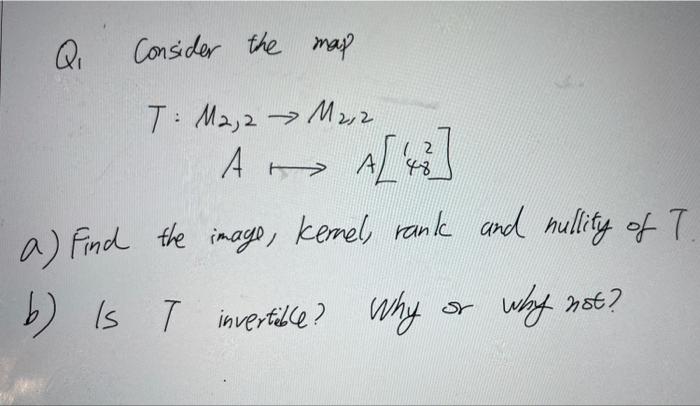 Q1 Consider the map
T : M2,2 → M2,2
A ↦ A[1 2
4 8]
a) Find the image, kernel, rank and nullity of T.
b) Is T invertible? Why or why not?